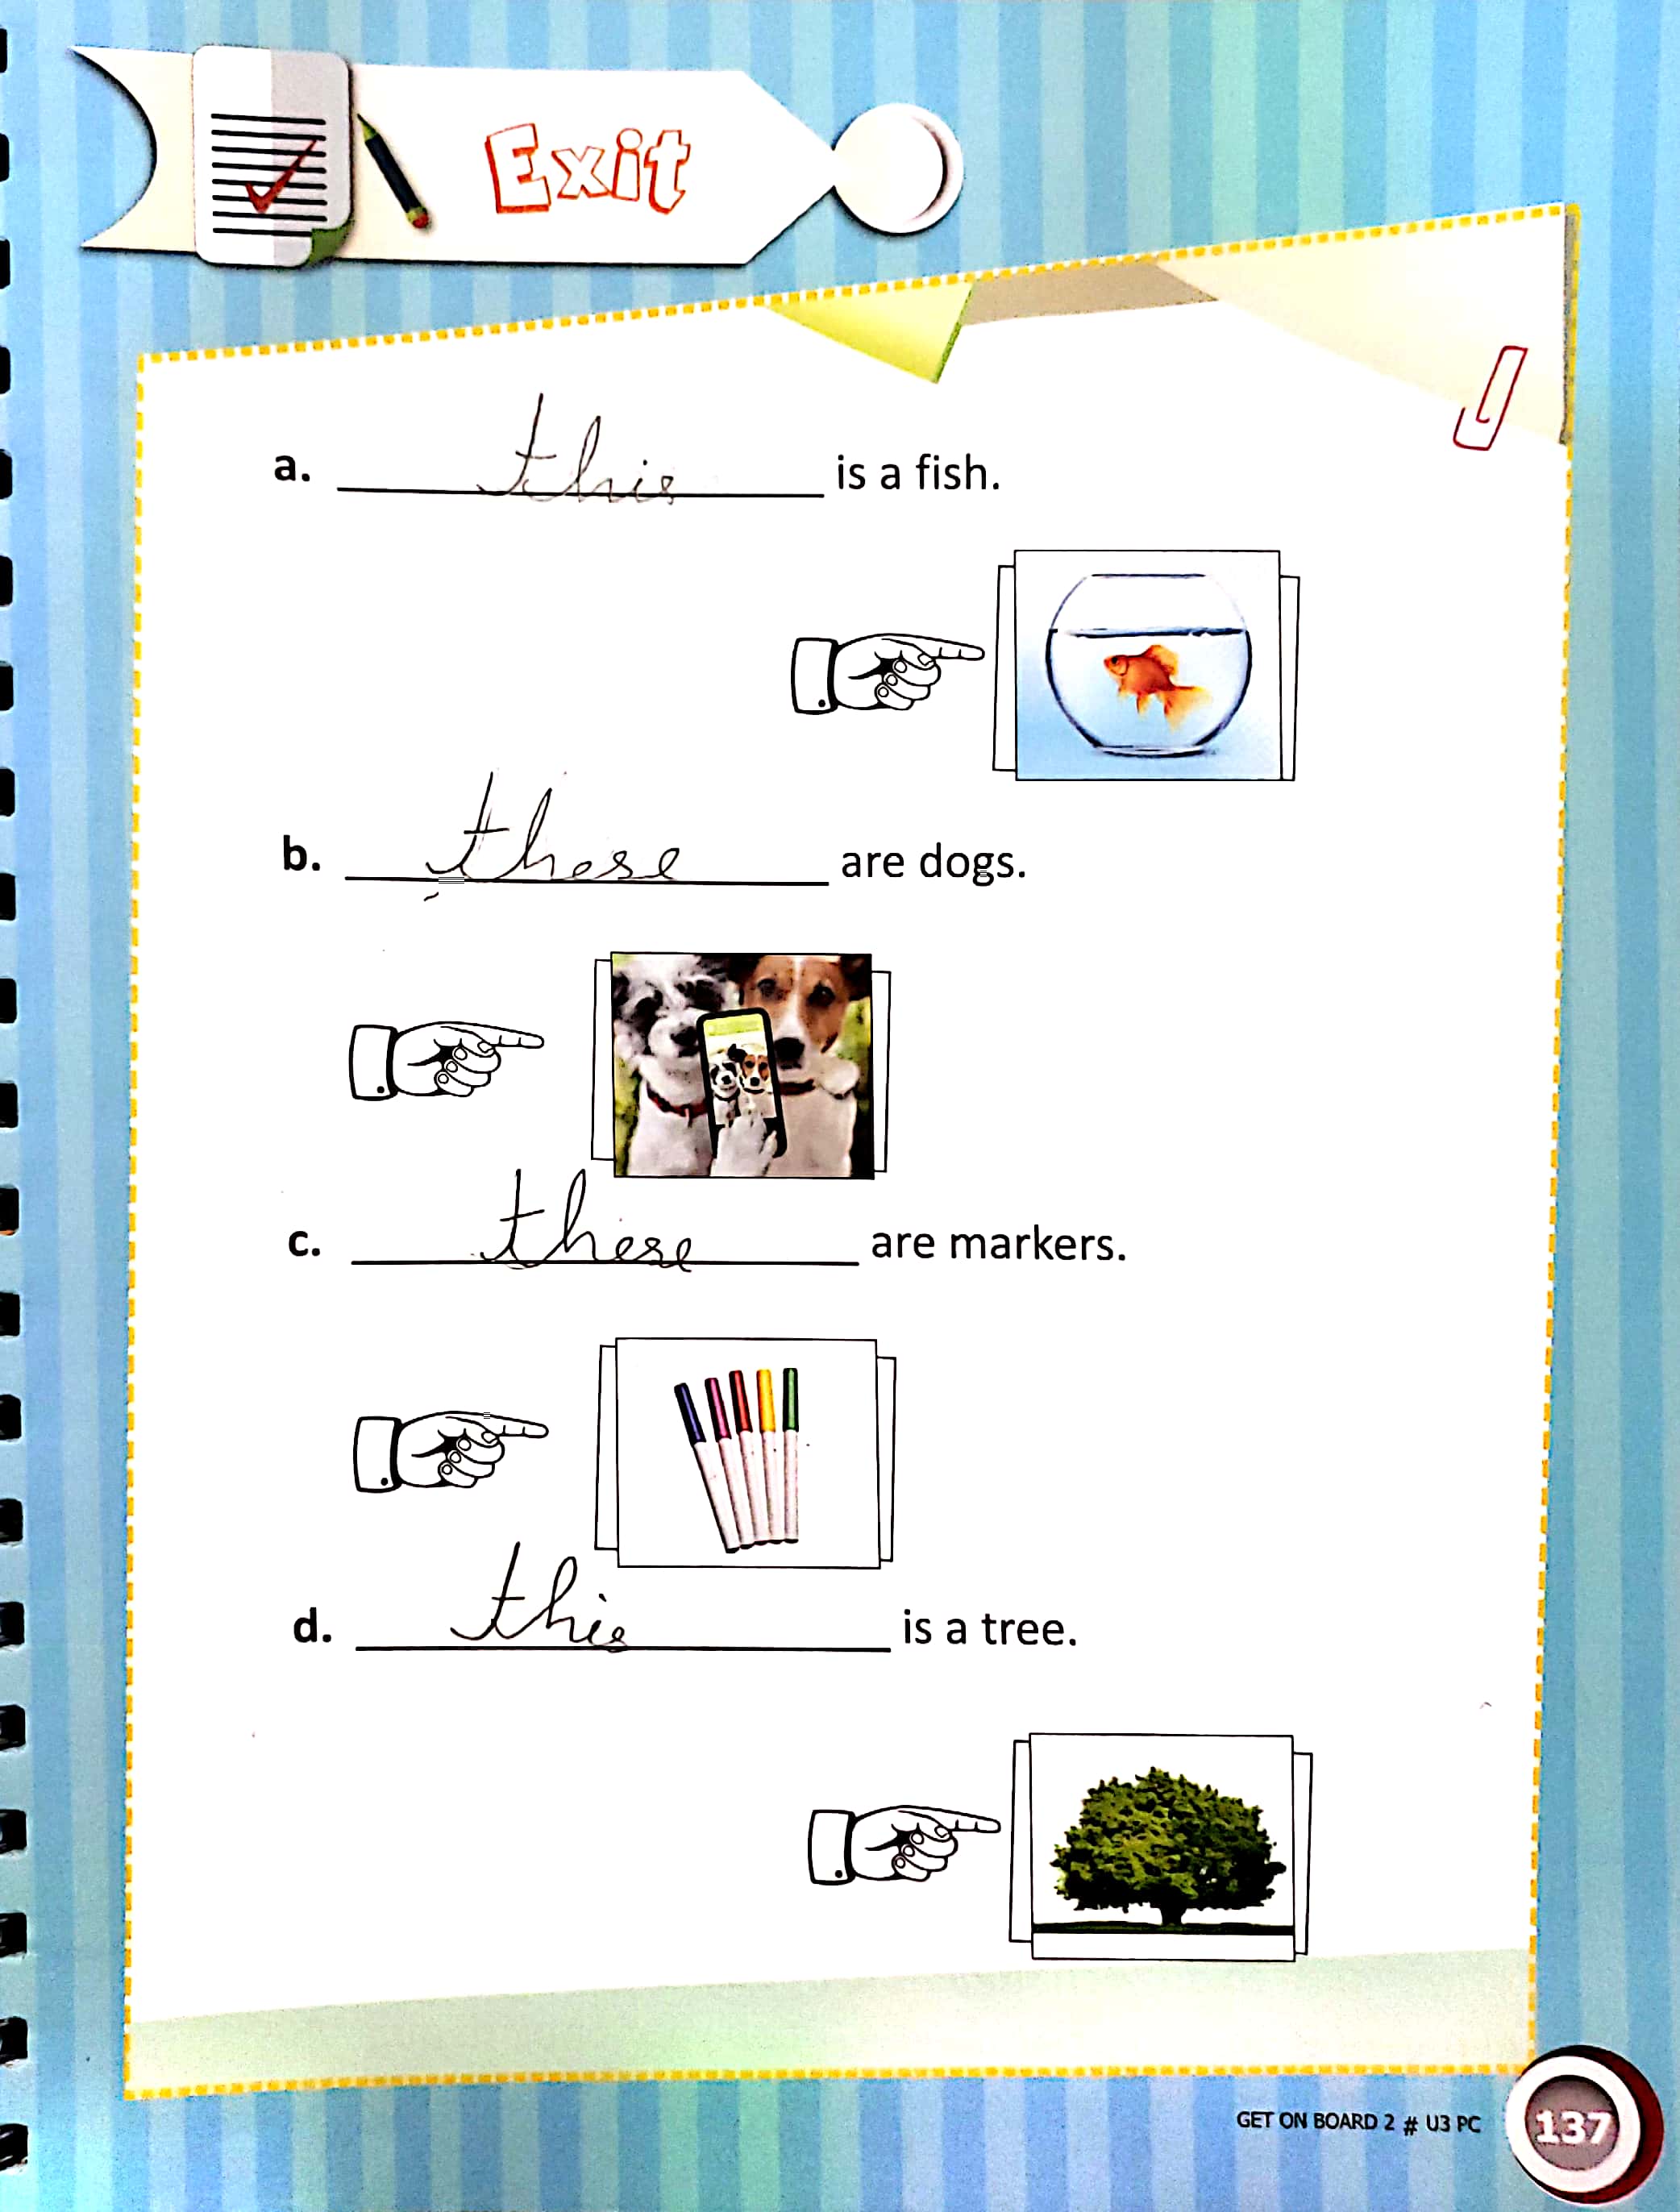 Exit
a. this is a fish.
b. these are dogs.
c. these are markers.
d. this is a tree.
GET ON BOARD 2 # U3 PC
137